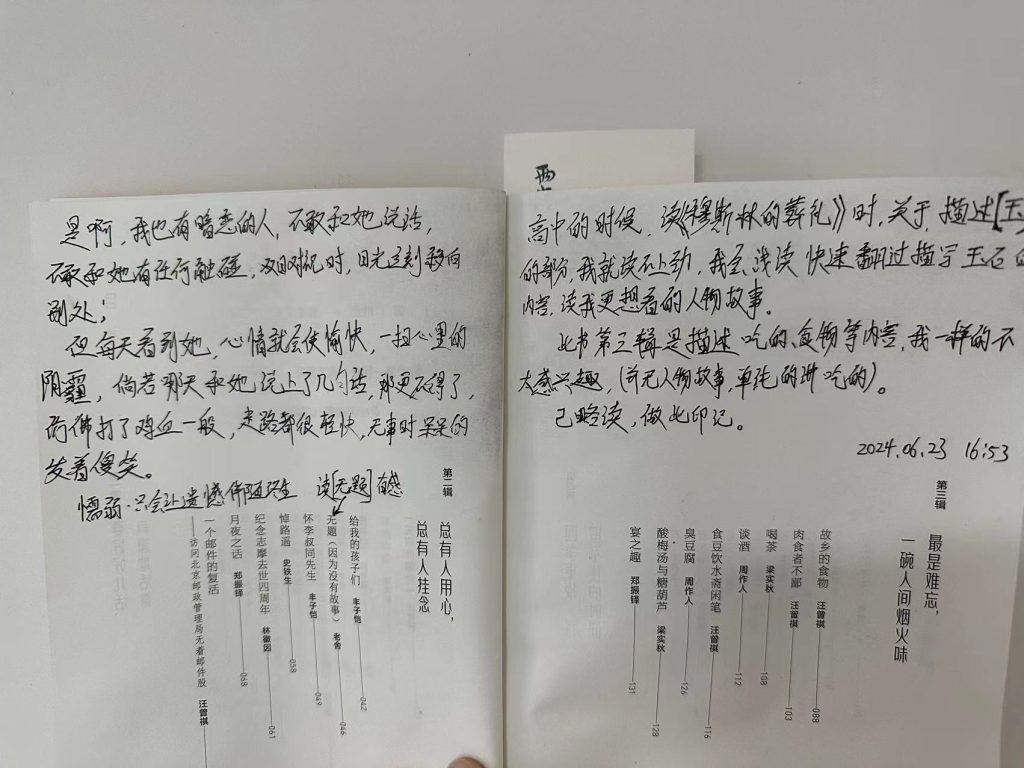 是啊,我也有暗恋的人,不敢和她说话,
不敢和她有任何触碰,双目对视时,目光达到移向
别处;
但每天看到她,心情就会使愉快,一扫心里的
阴霾,倘若哪天和她说上了几句话,那更不得了,
仿佛打了鸡血一般,走路都很轻快,无事时呆呆的
发着傻笑。
懦弱·只会让遗憾伴随终生 读[无题]有感
第二辑
总有人用心,
总有人挂念
给我的孩子们 丰子恺 042
无题(因为没有故事) 老舍 046
怀李叔同先生 丰子恺 049
悼路遥 史铁生 058
纪念志摩去世四周年 林徽因 061
月夜之话 郑振铎 068
一个邮件的复活
——访问北京邮政管理局无着邮件股 汪曾祺
高中的时候,读《穆斯林的葬礼》时,关于,描述[玉
的部分,我就读不上劲,我会浅读 快速翻过描写玉石
内容,读我更想看的人物故事。
此书第三辑是描述吃的、食物等内容,我一样的不
太感兴趣,(并无人物故事,单纯的讲吃的)。
已略读,做此印记。
2024.06.23 16:53
第三辑
最是难忘,
一碗人间烟火味
故乡的食物 汪曾祺 088
肉食者不鄙 汪曾祺 103
喝茶 梁实秋 108
谈酒 周作人 112
食豆饮水斋闲笔 汪曾祺 116
臭豆腐 周作人 126
酸梅汤与糖葫芦 梁实秋 128
宴之趣 郑振铎 131